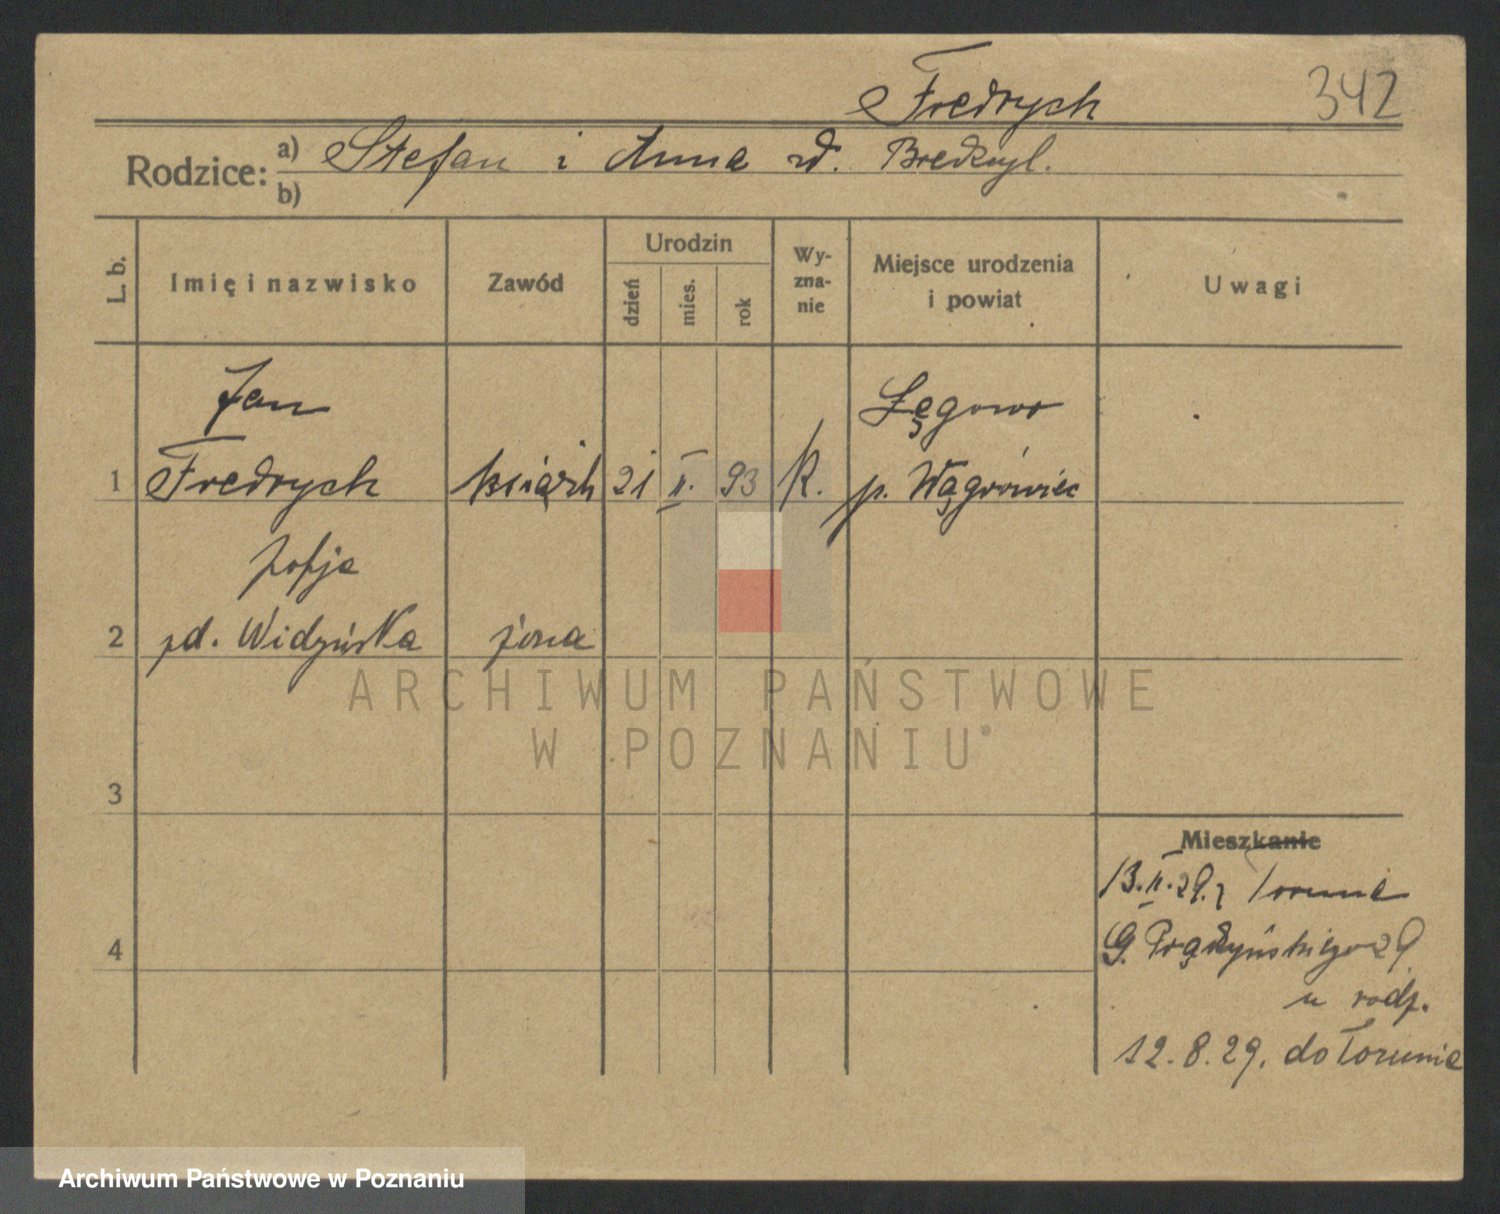 Fredrych 342
Rodzice: a) Stefan i Anna zd.
b)
L. b. Imię i nazwisko Zawód Urodzin dzień mies. rok Wy-zna-nie Miejsce urodzenia i powiat Uwagi
Jan Łęgowo
1 Fredrych 21 II. 93 K. p. Wągrówiec
Zofja
2 zd. Widzyńska żona
ARCHIWUM PAŃSTWOWE
W POZNANIU
3
Mieszkanie
13.II.29. z Torunia
4 G. Prądzyńskiego 29
u rodz.
12.8.29. do Torunia
Archiwum Państwowe w Poznaniu